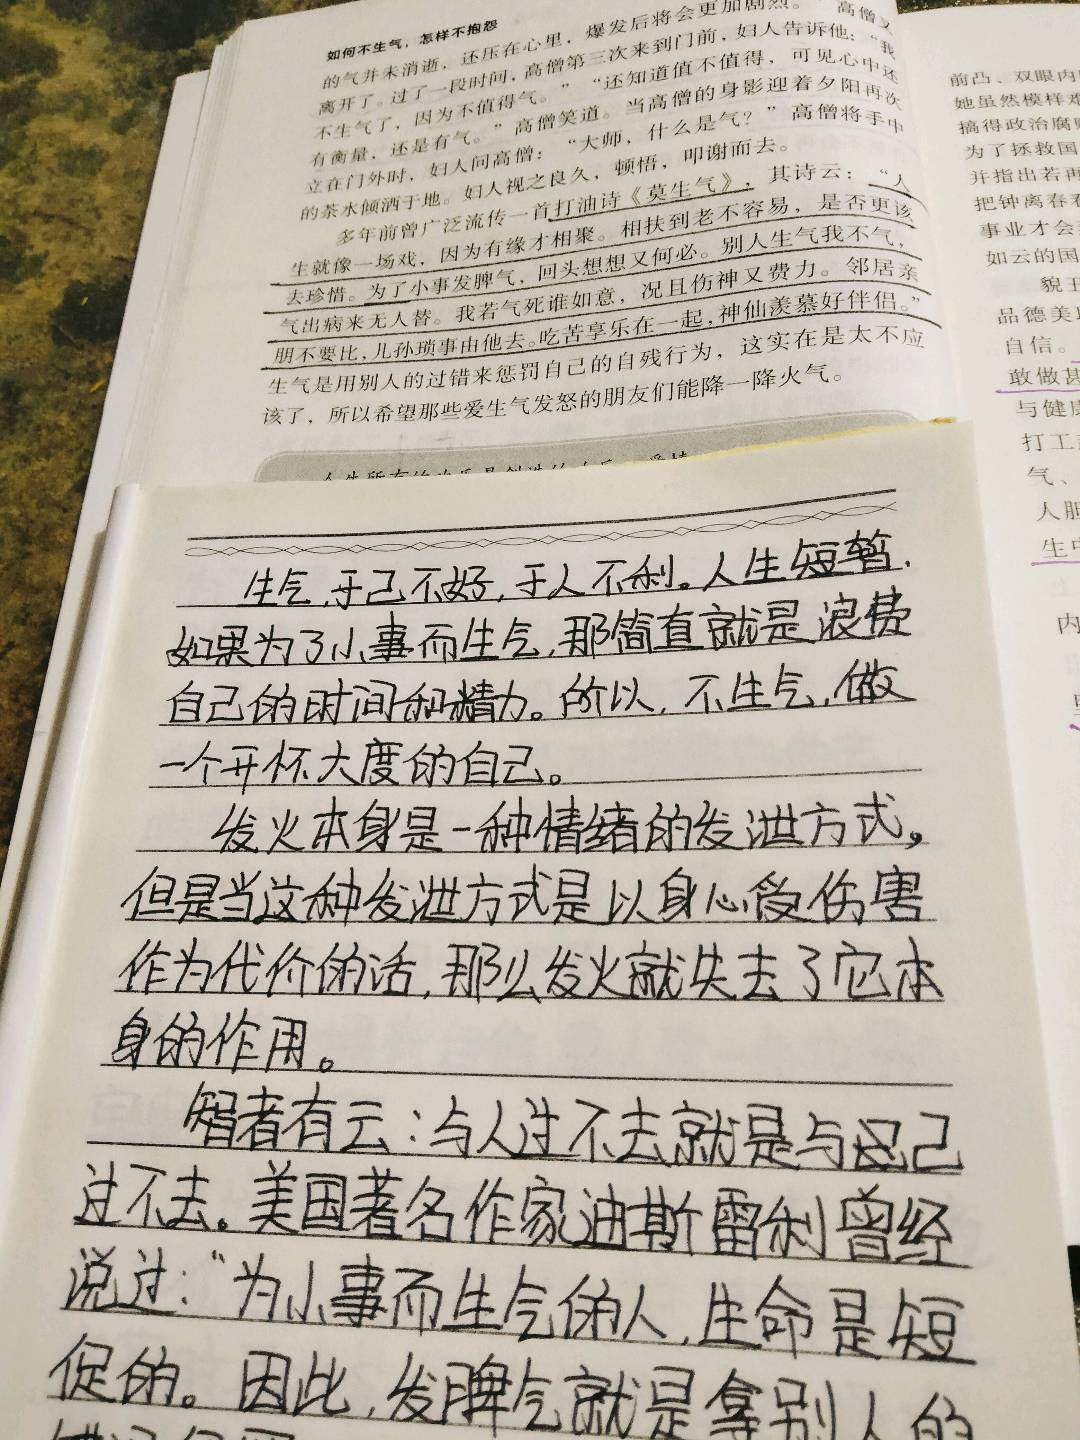 如何不生气,怎样不抱怨
的气并未消逝,还压在心里,爆发后将会更加剧烈。”高僧又
离开了。过了一段时间,高僧第三次来到门前,妇人告诉他:“我
不生气了,因为不值得气。”“还知道值不值得,可见心中还
有衡量,还是有气。”高僧笑道。当高僧的身影迎着夕阳再次
立在门外时,妇人问高僧:“大师,什么是气?”高僧将手中
的茶水倾洒于地。妇人视之良久,顿悟,叩谢而去。
多年前曾广泛流传一首打油诗《莫生气》,其诗云:“人
生就像一场戏,因为有缘才相聚。相扶到老不容易,是否更该
去珍惜。为了小事发脾气,回头想想又何必。别人生气我不气,
气出病来无人替。我若气死谁如意,况且伤神又费力。邻居亲
朋不要比,儿孙琐事由他去。吃苦享乐在一起,神仙羡慕好伴侣。”
生气是用别人的过错来惩罚自己的自残行为,这实在是太不应
该了,所以希望那些爱生气发怒的朋友们能降一降火气。
生气,于己不好,于人不利。人生短暂,
如果为了小事而生气,那简直就是浪费
自己的时间和精力。所以,不生气,做
一个开怀大度的自己。
发火本身是一种情绪的发泄方式,
但是当这种发泄方式是以身心受伤害
作为代价的话,那么发火就失去了它本
身的作用。
智者有云:与人过不去就是与自己
过不去。美国著名作家迪斯雷利曾经
说过:“为小事而生气的人,生命是短
促的。因此,发脾气就是拿别人的
前凸、双眼内
她虽然模样难
搞得政治腐
为了拯救国
并指出若再
把钟离春
事业才会
如云的国
貌王
品德美
自信。
敢做甚
与健康
打工
气、
人胆
生中
内